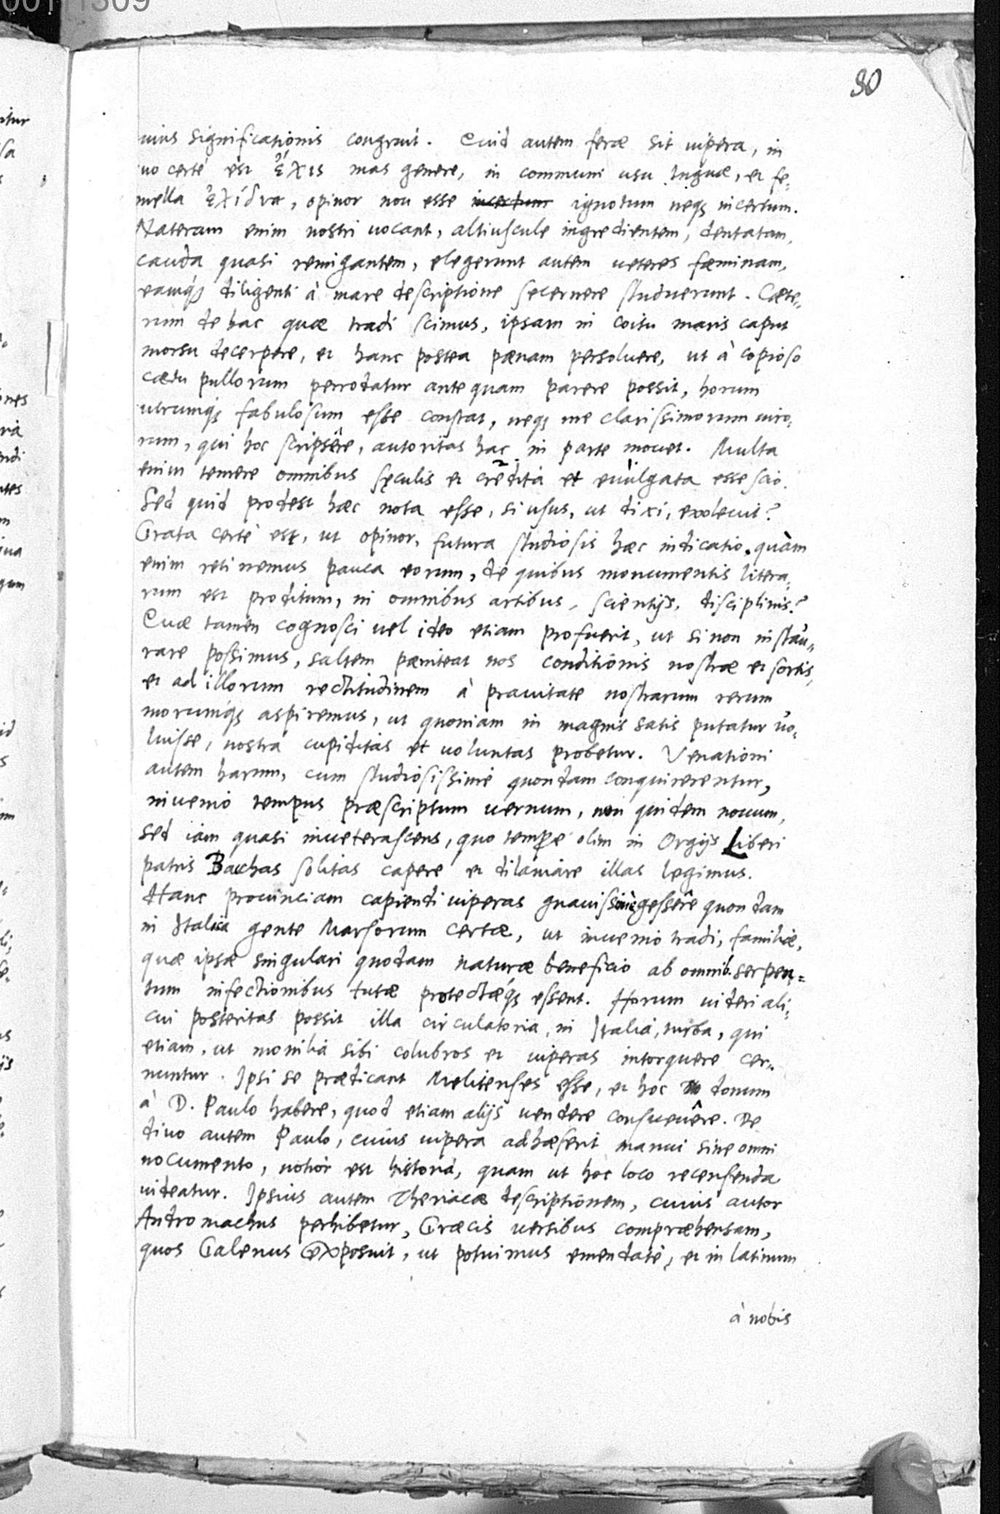 90
uius significationis congruit. Quid autem feræ sit uipera, in
quo certè est ἔχις mas genere, in communi usu linguæ, et fe,
mella ἔχίδνα, opinor non esse incertum ignotum neqꝫ incertum.
Nateram enim nostri uocant, altiuscule ingredientem, dentatam,
cauda quasi remigantem, elegerunt autem ueteres fœminam,
eamqꝫ diligenti à mare descriptione secernere studuerunt. Cæte,
rum de hac quæ tradi scimus, ipsam in coitu maris caput
morsu decerpere, et hanc postea pœnam persoluere, ut à copioso
cœtu pullorum perrodatur antequam parere possit, horum
utrumqꝫ fabulosum esse constat, neqꝫ me clarissimorum uiro,
rum, qui hoc scripsêre, autoritas hac in parte mouet. Multa
enim temere omnibus sęculis et credita et euulgata esse scio.
Sed quid prodest hæc nota esse, si usus, ut dixi, exoleuit?
Grata certè est, ut opinor, futura studiosis hæc indicatio. quàm
enim retinemus pauca eorum, de quibus monumentis litera,
rum est proditum, in omnibus artibus, scientijs, disciplinis?
Quæ tamen cognosci uel ideo etiam profuerit, ut si non instau,
rare possimus, saltem pœniteat nos conditionis nostræ et sortis,
et ad illorum rectitudinem à prauitate nostrarum rerum
morumqꝫ aspiremus, ut quoniam in magnis satis putatur uo,
luisse, nostra cupiditas et uoluntas probetur. Venationi
autem harum, cum studiosissimè quondam conquirerentur,
inuenio tempus præscriptum uernum, non quidem nouum,
sed iam quasi inueterascens, quo tempore olim in Orgijs Liberi
patris Bacchas solitas capere et dilaniare illas legimus.
Hanc prouinciam capiendi uiperas gnauissimè gessêre quondam
in Italia gente Marsorum certæ, ut inuenio tradi, familiæ,
quæ ipsæ singulari quodam naturæ beneficio ab omnib. serpen=
tum infectionibus tutæ protectæqꝫ essent. Horum uideri ali,
cui posteritas possit illa circulatoria, in Italia, turba, qui
etiam, ut monilia sibi colubros et uiperas intorquere cer,
nuntur. Ipsi se prædicant Melitenses esse, et hoc donum
à D. Paulo habere, quod etiam alijs uendere consueuêre. De
diuo autem Paulo, cuius uipera adhæserit manui sine omni
nocumento, notior est historia, quam ut hoc loco recensenda
uideatur. Ipsius autem Theriacæ descriptionem, cuius autor
Andromachus perhibetur, Græcis uersibus compræhensam,
quos Galenus exposuit, ut potuimus emendatè, et in latinum
à nobis